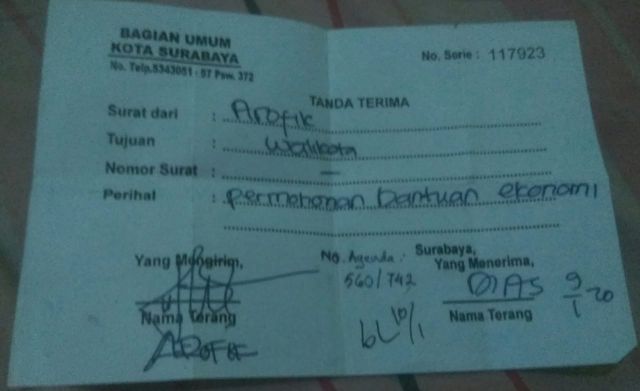 BAGIAN UMUM
KOTA SURABAYA
No. Telp.5343051 - 57 Psw. 372
No. Serie : 117923
TANDA TERIMA
Surat dari : Arofik
Tujuan : Walikota
Nomor Surat : —
Perihal : permohonan bantuan ekonomi
Yang Mengirim,
Nama Terang
No. Agenda :
560/742
Surabaya,
Yang Menerima,
DIAS 9/1 20
Nama Terang
10/1